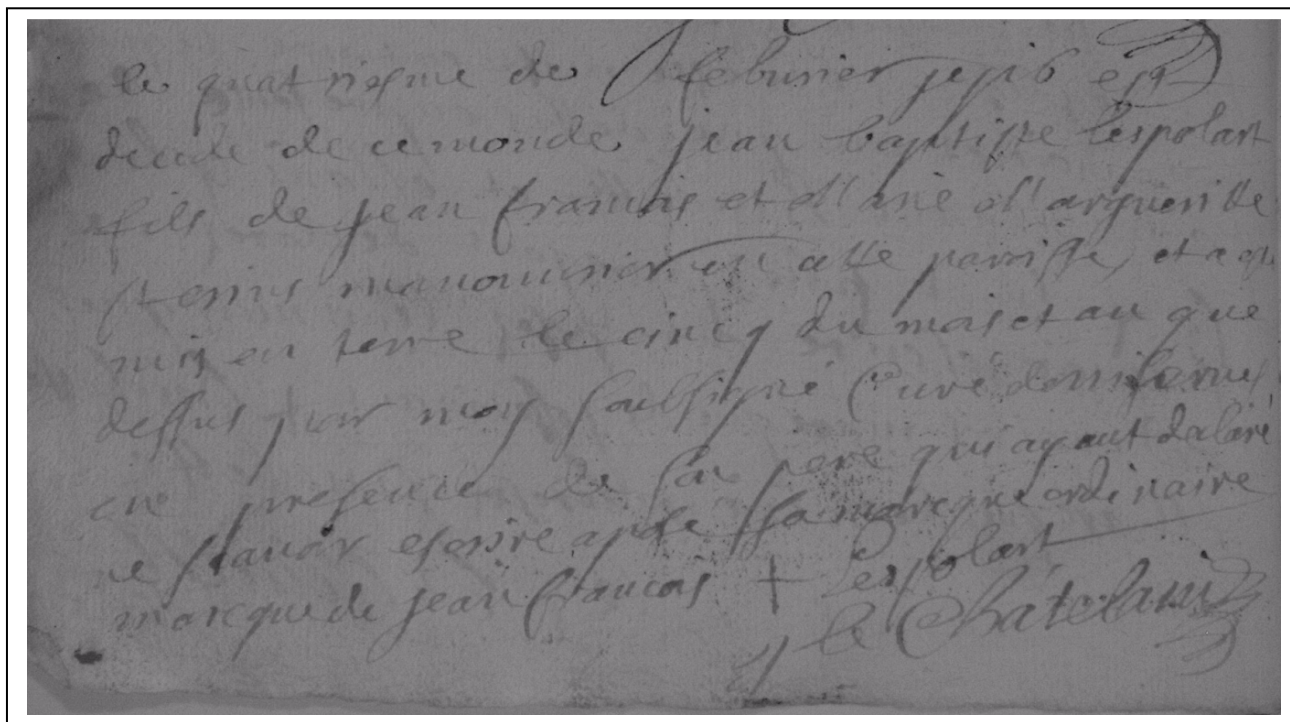 le quatriesme de febvrier 1716 est
decede de ce monde jean baptiste lespolart
fils de jean francois et Marie Marguerite
manouvrier en cette paroisse, et a este
mis en terre le cincq du mois et an que
dessus par moy soubsigné Curé
en presence de son pere qui ayant dalaré
ne scavoir escrire a posé sa marcque ordinaire
marcque de jean francois + Lespolart
le Chatelain